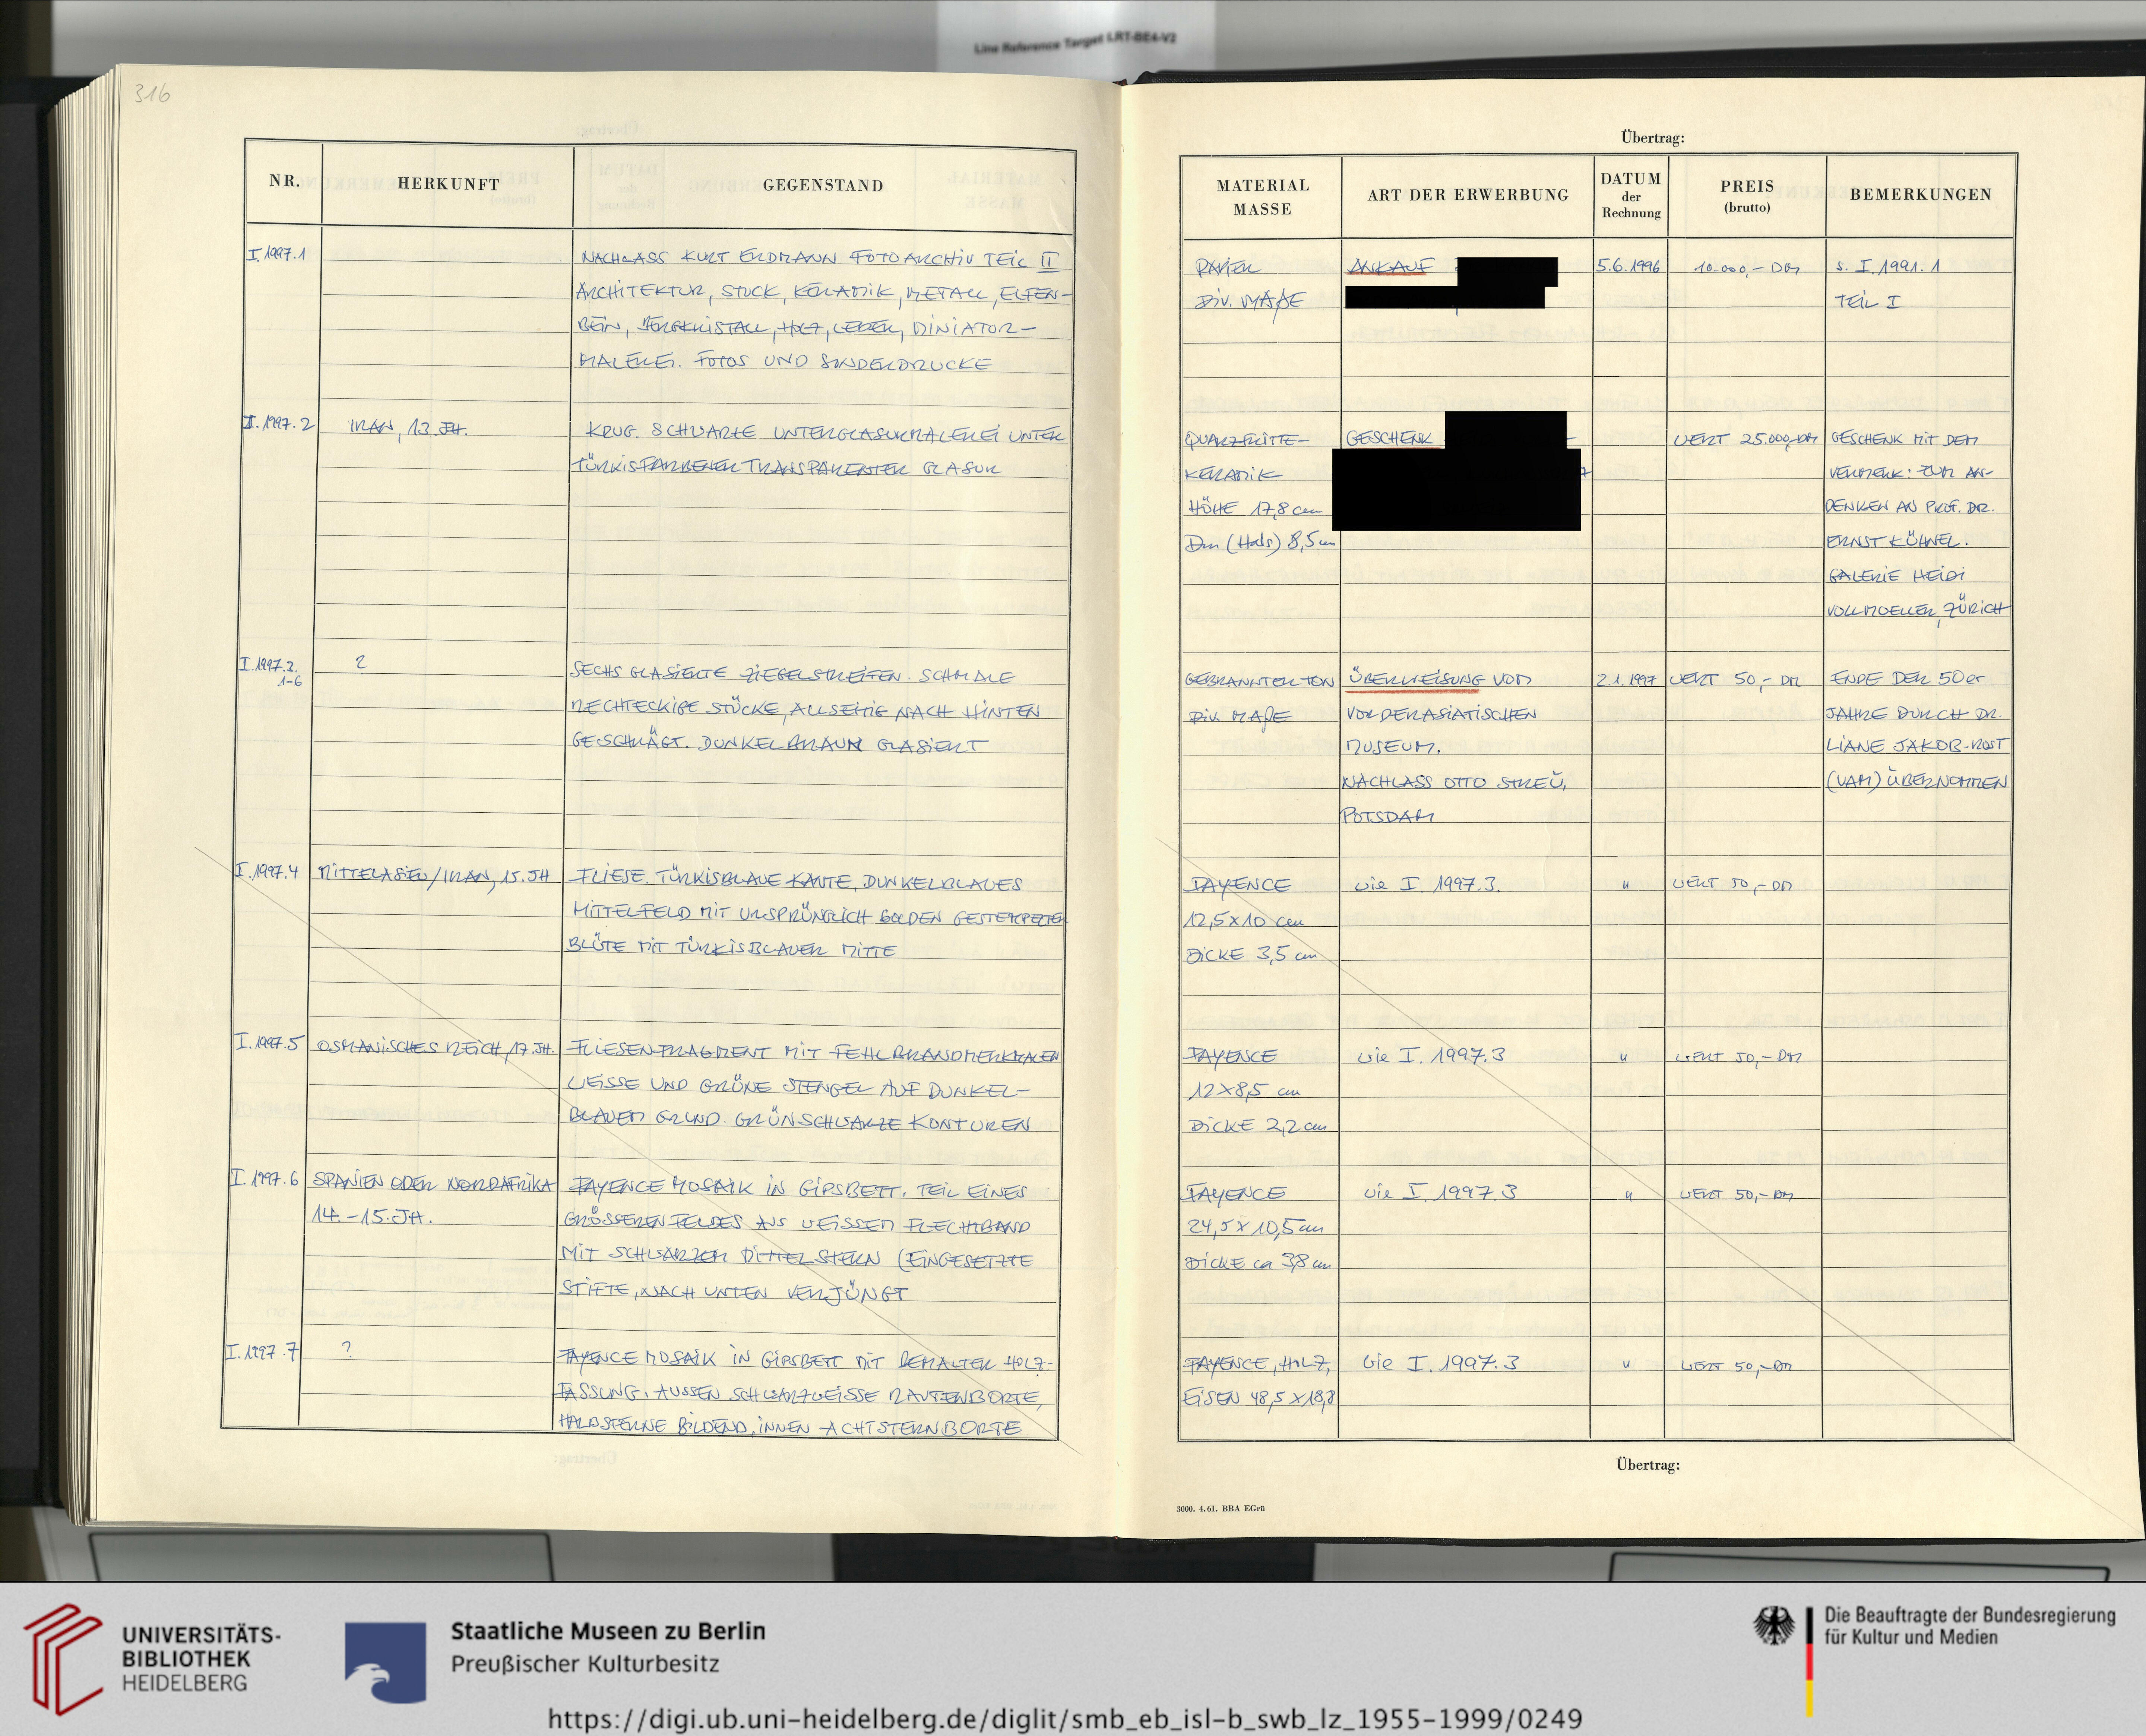 Line Reference Target LRT-BE4-V2
316
NR.
HERKUNFT
GEGENSTAND
I.1997.1
NACHLASS KURT ERDMANN FOTOARCHIV TEIL II
ARCHITEKTUR, STUCK, KERAMIK, METALL, ELFEN-
BEIN, BERGKRISTALL, HOLZ, LEDER, MINIATUR-
MALEREI. FOTOS UND SONDERDRUCKE
I.1997.2
IRAN, 13. JH.
KRUG. SCHWARZE UNTERGLASURMALEREI UNTER
TÜRKISFARBENER TRANSPARENTER GLASUR
I.1997.3.
1-6
?
SECHS GLASIERTE ZIEGELSTREIFEN. SCHMALE
RECHTECKIGE STÜCKE, ALLSEITIG NACH HINTEN
GESCHRÄGT. DUNKELBRAUN GLASIERT
I.1997.4
MITTELASIEN/IRAN, 15. JH
FLIESE. TÜRKISBLAUE KANTE, DUNKELBLAUES
MITTELFELD MIT URSPRÜNGLICH GOLDEN GESTEMPELTER
BLÜTE MIT TÜRKISBLAUER MITTE
I.1997.5
OSMANISCHES REICH, 17. JH.
FLIESENFRAGMENT MIT FEHLBRANDMERKMALEN
WEISSE UND GRÜNE STENGEL AUF DUNKEL-
BLAUEM GRUND. GRÜNSCHWARZE KONTUREN
I.1997.6
SPANIEN ODER NORDAFRIKA
14.-15. JH.
FAYENCEMOSAIK IN GIPSBETT. TEIL EINES
GRÖSSEREN FELDES AUS WEISSEM FLECHTBAND
MIT SCHWARZEM MITTELSTERN (EINGESETZTE
STIFTE, NACH UNTEN VERJÜNGT
I.1997.7
?
FAYENCEMOSAIK IN GIPSBETT MIT BEMALTER HOLZ-
FASSUNG. AUSSEN SCHWARZWEISSE RAUTENBORTE,
HALBSTERNE BILDEND, INNEN ACHTSTERNBORTE
Übertrag:
MATERIAL
MASSE
ART DER ERWERBUNG
DATUM
der
Rechnung
PREIS
(brutto)
BEMERKUNGEN
PAPIER
DIV. MAßE
ANKAUF
5.6.1996
10.000,- DM
s. I.1991.1
TEIL I
QUARZFRITTE-
KERAMIK
HÖHE 17,8 cm
Dm (Hals) 8,5 cm
GESCHENK
WERT 25.000,-DM
GESCHENK MIT DEM
VERMERK: ZUM AN-
DENKEN AN PROF. DR.
ERNST KÜHNEL.
GALERIE HEIDI
VOLLMOELLER, ZÜRICH
GEBRANNTER TON
Div. MAßE
ÜBERWEISUNG VOM
VORDERASIATISCHEN
MUSEUM.
NACHLASS OTTO STREU,
POTSDAM
2.1.1997
WERT 50,- DM
ENDE DER 50er
JAHRE DURCH DR.
LIANE JAKOB-ROST
(VAM) ÜBERNOMMEN
FAYENCE
12,5x10 cm
DICKE 3,5 cm
wie I. 1997.3.
"
WERT 50,- DM
FAYENCE
12x8,5 cm
DICKE 2,2 cm
wie I. 1997.3
"
WERT 50,- DM
FAYENCE
24,5 x 10,5 cm
DICKE ca 3,8 cm
wie I. 1997.3
"
WERT 50,- DM
FAYENCE, HOLZ,
EISEN 48,5 x 18,8
wie I. 1997.3
"
WERT 50,- DM
Übertrag:
3000. 4.61. BBA EGrü
UNIVERSITÄTS-
BIBLIOTHEK
HEIDELBERG
Staatliche Museen zu Berlin
Preußischer Kulturbesitz
Die Beauftragte der Bundesregierung
für Kultur und Medien
https://digi.ub.uni-heidelberg.de/diglit/smb_eb_isl-b_swb_lz_1955-1999/0249